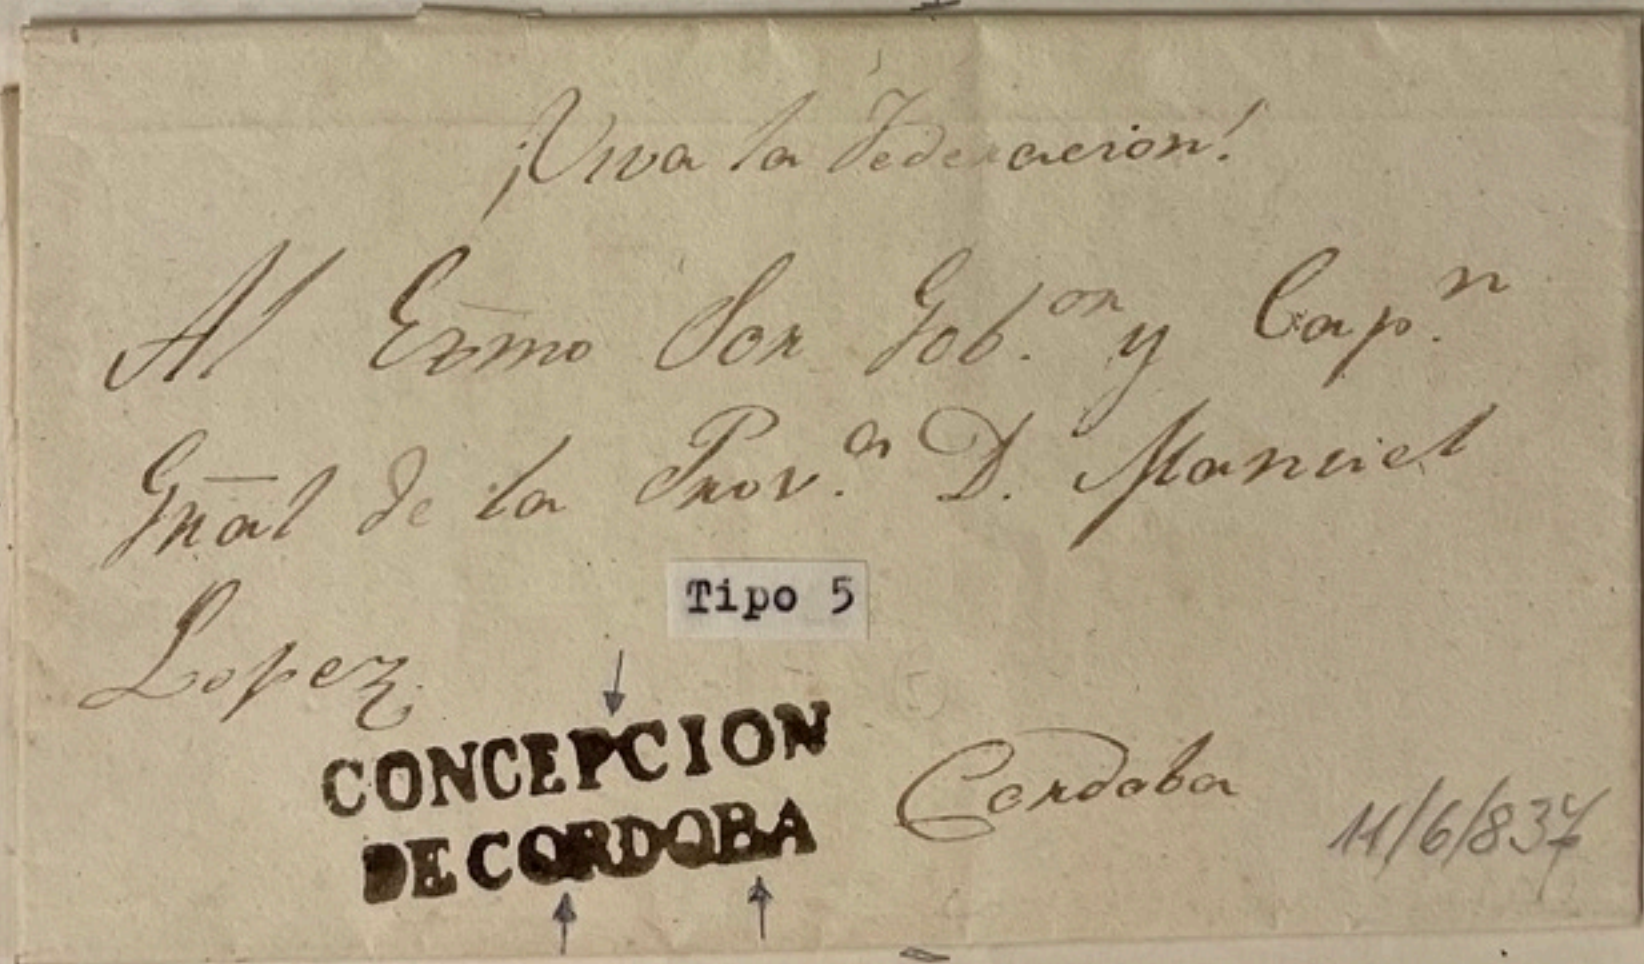 ¡Viva la Federacion!
Al Exm̃o Sor Gob.or y Cap.n
Gñal de la Prov.a D. Manuel
Lopez
Tipo 5
CONCEPCION
DE CORDOBA
Cordoba
11/6/837